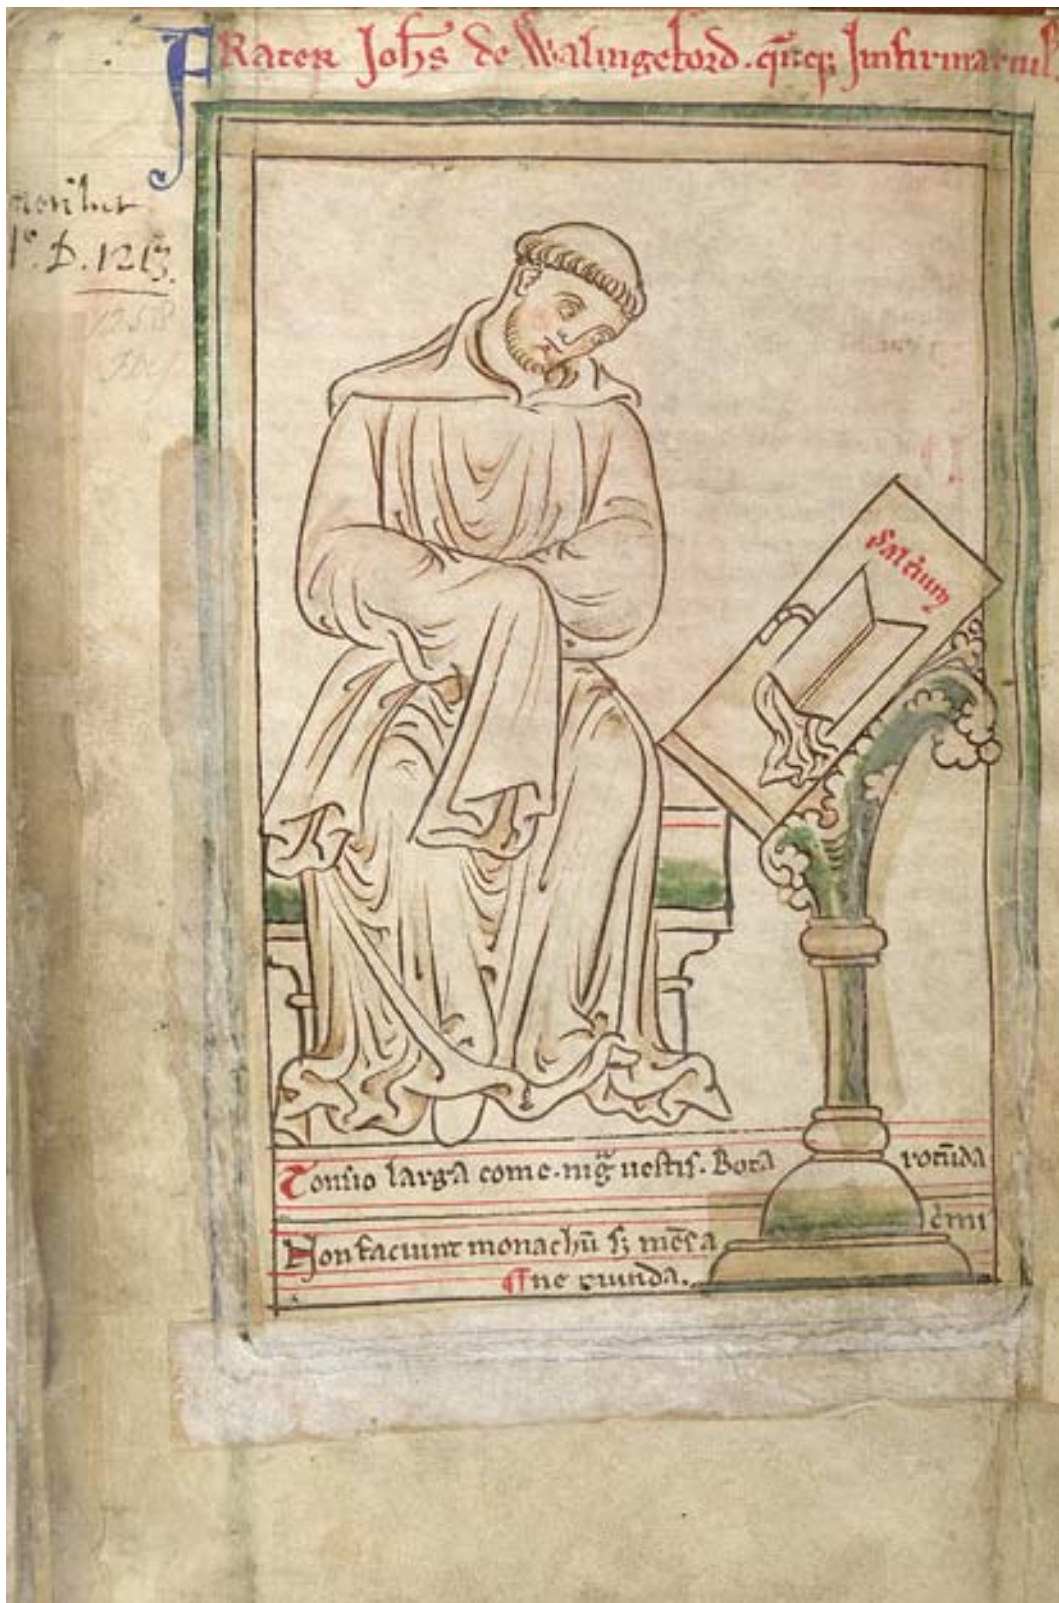 FRater Joh̄s de Walingeford. q̄nq; Infirmarius
morit̄ur
Aº. D. 1213.
1258
Psalt̄ium
Tonsio larga come. nig̃ uestis. Bota rotūda
Non faciunt monachū s; mēs a c̄mi
¶ ne munda.